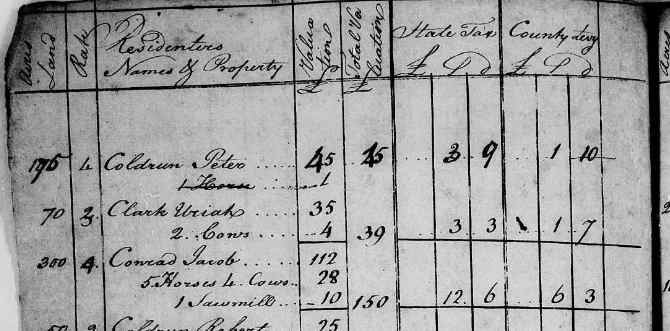 Acres Land Rate Residenters Names & Property Valuation £ Total Valuation £ State Tax £ S d County levy £ S d
175 4 Coldrun Peter 45 45 3 9 1 10
1 Horse 1
70 3 Clark Uriah 35
2 Cows 4 39 3 3 1 7
300 4 Conrad Jacob 112
5 Horses 4 Cows 28
1 Sawmill 10 150 12 6 6 3
50 Coldrun Robert 25